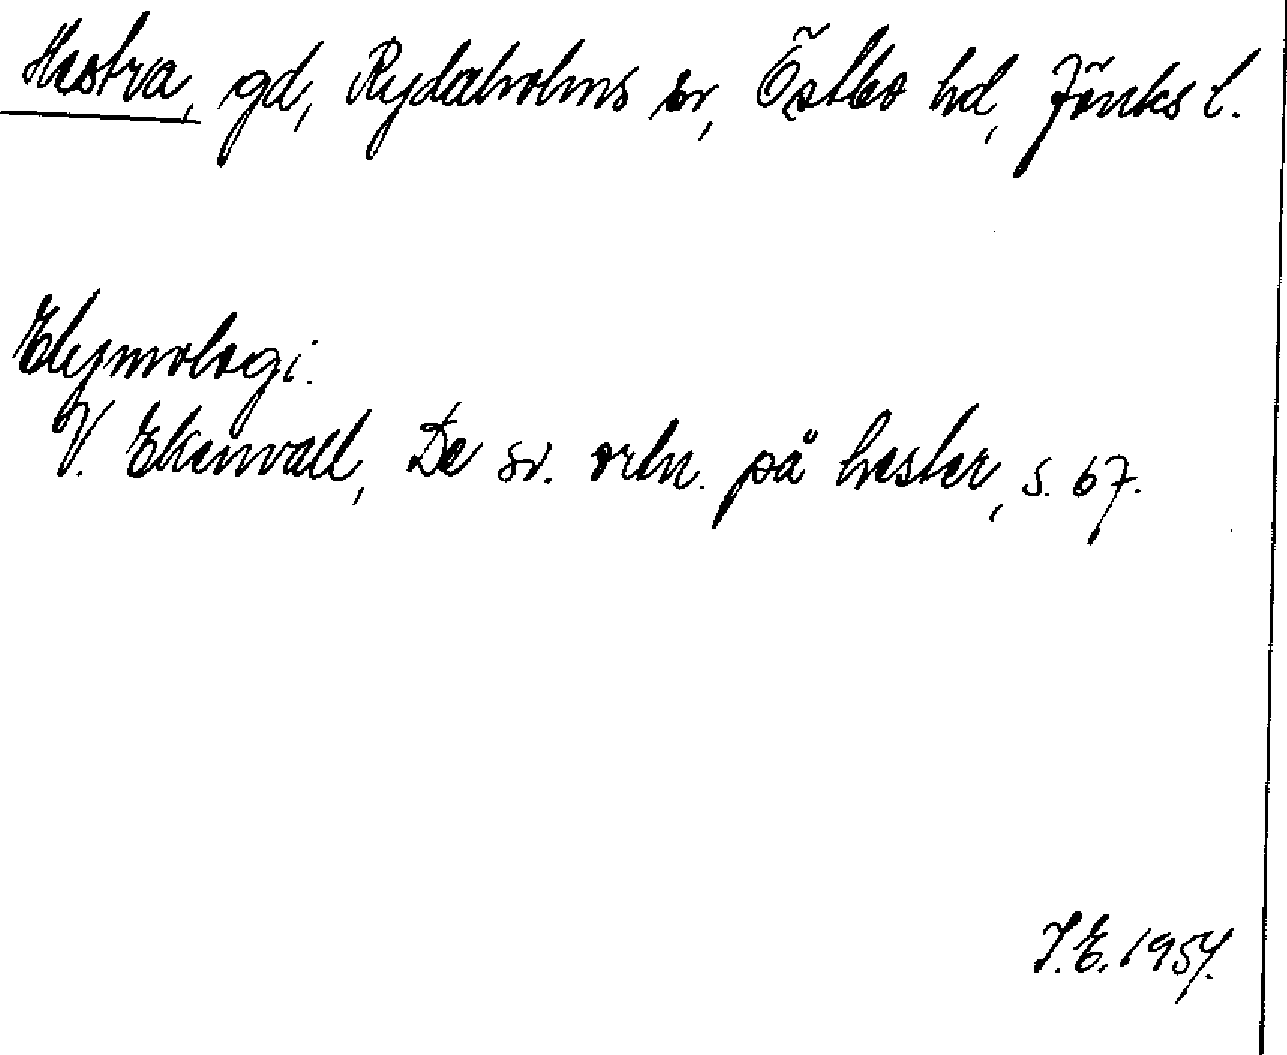 Hestra, gd, Rydaholms sn, Östbo hd, Jönks l.
Etymologi.
V. Ekenvall, De sv. ortn. på hester, s. 67.
I.E. 1957.